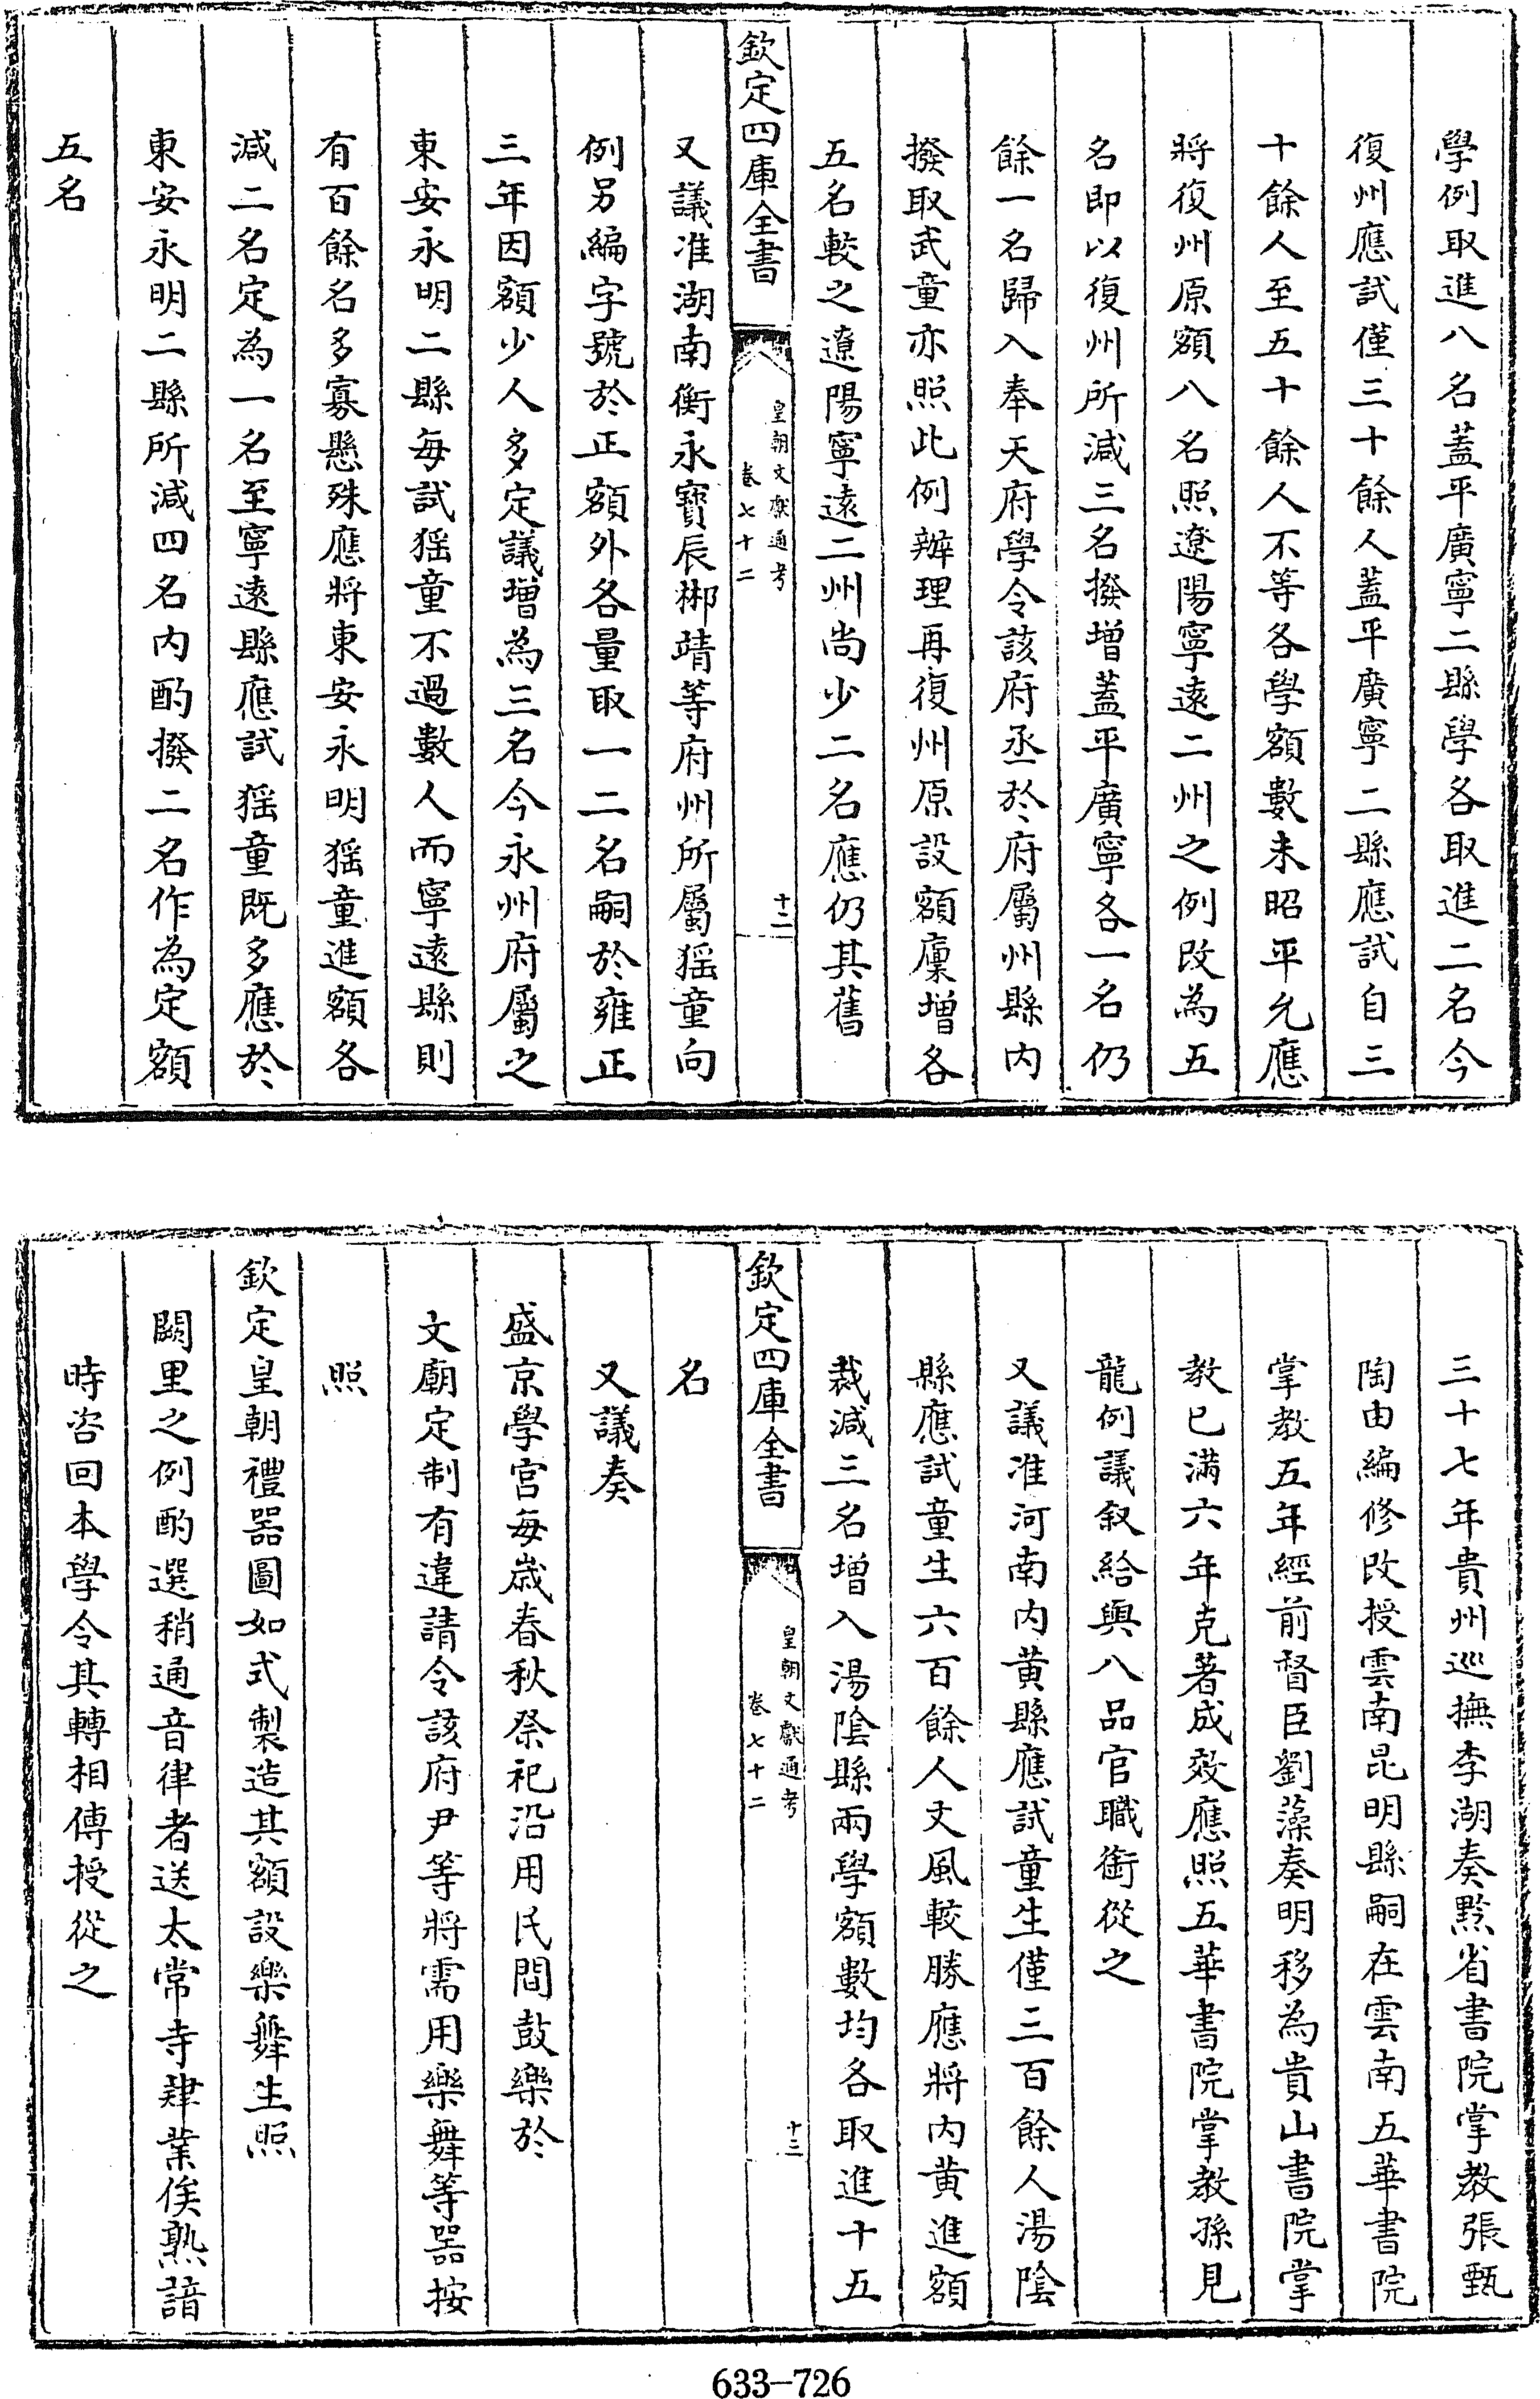 學例取進八名蓋平廣寧二縣學各取進二名今
復州應試僅三十餘人蓋平廣寧二縣應試自三
十餘人至五十餘人不等各學額數未昭平允應
將復州原額八名照遼陽寧遠二州之例改為五
名即以復州所減三名撥增蓋平廣寧各一名仍
餘一名歸入奉天府學令該府丞於府屬州縣内
撥取武童亦照此例辦理再復州原設額廩增各
五名較之遼陽寧遠二州尚少二名應仍其舊
欽定四庫全書
皇朝文獻通考
卷七十二
十二
又議准湖南衡永寶辰郴靖等府州所屬猺童向
例另編字號於正額外各量取一二名嗣於雍正
三年因額少人多定議增為三名今永州府屬之
東安永明二縣每試猺童不過數人而寧遠縣則
有百餘名多寡懸殊應將東安永明猺童進額各
減二名定為一名至寧遠縣應試猺童既多應於
東安永明二縣所減四名内酌撥二名作為定額
五名
三十七年貴州巡撫李湖奏黔省書院掌教張甄
陶由編修改授雲南昆明縣嗣在雲南五華書院
掌教五年經前督臣劉藻奏明移為貴山書院掌
教已滿六年克著成效應照五華書院掌教孫見
龍例議叙給與八品官職銜從之
又議准河南内黄縣應試童生僅三百餘人湯陰
縣應試童生六百餘人文風較勝應將内黄進額
裁減三名增入湯陰縣兩學額數均各取進十五
欽定四庫全書
皇朝文獻通考
卷七十二
十三
名
又議奏
盛京學宫每歲春秋祭祀沿用民間鼓樂於
文廟定制有違請令該府尹等將需用樂舞等器按
照
欽定皇朝禮器圖如式製造其額設樂舞生照
闕里之例酌選稍通音律者送太常寺肄業俟熟諳
時咨回本學令其轉相傳授從之
633-726